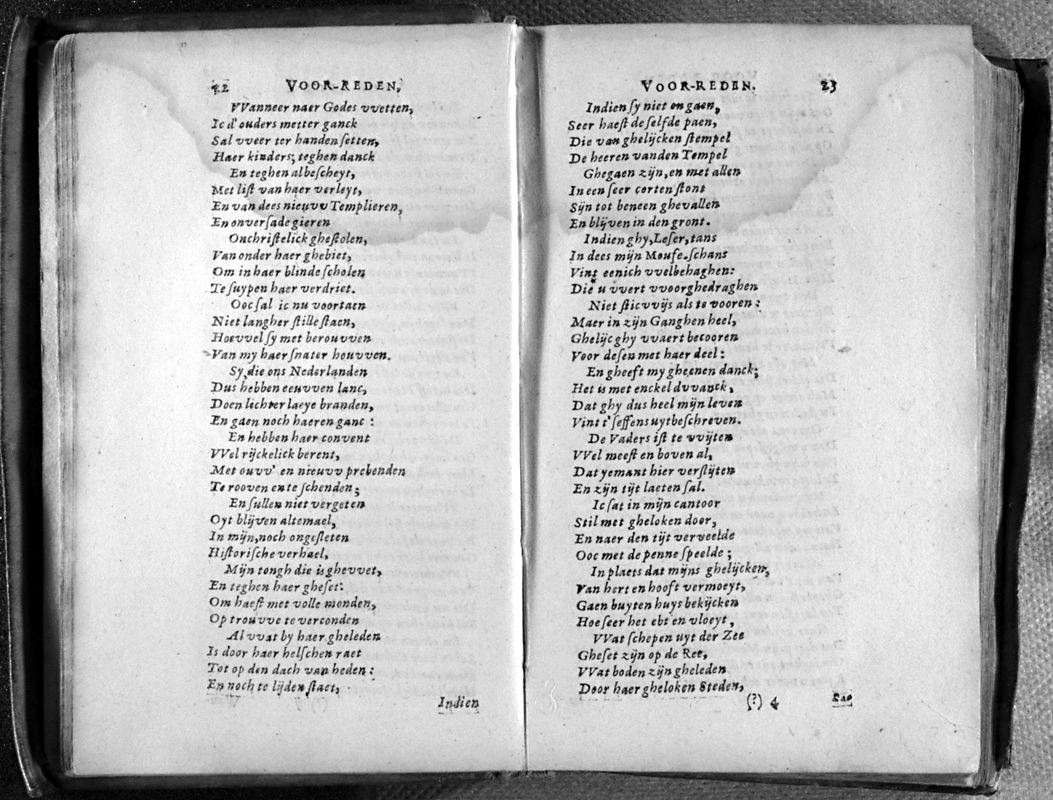 22 VOOR-REDEN,
VVanneer naer Godes vvetten,
Ic d'ouders metter ganck
Sal vveer ter handen ſetten,
Haer kinders; teghen danck
En teghen albeſcheyt,
Met liſt van haer verleyt,
En van dees nieuvv Templieren,
En onverſadegieren
Onchriſtelick gheſtolen,
Van onder haer ghebiet,
Om in haer blinde ſcholen
Te ſuypen haer verdriet.
Ooc ſal ic nu voortaen
Niet langher ſtille ſtaen,
Hoevvel ſy met berouvven
Van my haer ſnater houvven.
Sy, die ons Nederlanden
Dus hebben eeuvven lanc,
Doen lichter laeye branden,
En gaen noch haeren ganc :
En hebben haer convent
VVel rijckelick berent,
Met ouvv' en nieuvv prebenden
Te rooven en te ſchenden;
En ſullen niet vergeten
Oyt blijven altemael,
In mijn, noch ongeſleten
Hiſtoriſche verhael,
Mijn tongh die is ghevvet,
En teghen haer gheſet:
Om haeſt met volle monden,
Op trouvve te verconden
Al vvat by haer gheleden
Is door haer helſchen raet
Tot op den dach van heden :
En noch te lijden ſtaet,
Indien
VOOR-REDEN. 23
Indien ſy niet en gaen,
Seer haeſt de ſelfde paen,
Die van ghelijcken ſtempel
De heeren vanden Tempel
Ghegaen zijn, en met allen
In een ſeer corten ſtont
Sijn tot beneen ghevallen
En blijven in den gront.
Indien ghy, Leſer, tans
In dees mijn Mouſe-ſchans
Vint eenich vvelbehaghen:
Die u vvert vvoorghedraghen
Niet ſticvvijs als te vooren :
Maer in zijn Ganghen heel,
Ghelijc ghy vvaert becooren
Voor deſen met haer deel :
En gheeft my gheenen danck;
Het is met enckel dvvanck,
Dat ghy dus heel mijn leven
Vint t'ſeffens uytbeſchreven.
De Vaders iſt te vvijten
VVel meeſt en boven al,
Dat yemant hier verſlijten
En zijn tijt laeten ſal.
Ic ſat in mijn cantoor
Stil met gheloken door,
En naer den tijt verveelde
Ooc met de penne ſpeelde ;
In plaets dat mijns ghelijcken,
Van hert en hooft vermoeyt,
Gaen buyten huys bekijcken
Hoe ſeer het ebt en vloeyt,
VVat ſchepen uyt der Zee
Gheſet zijn op de Ree,
VVat boden zijn gheleden
Door haer gheloken Steden,
(?) 4